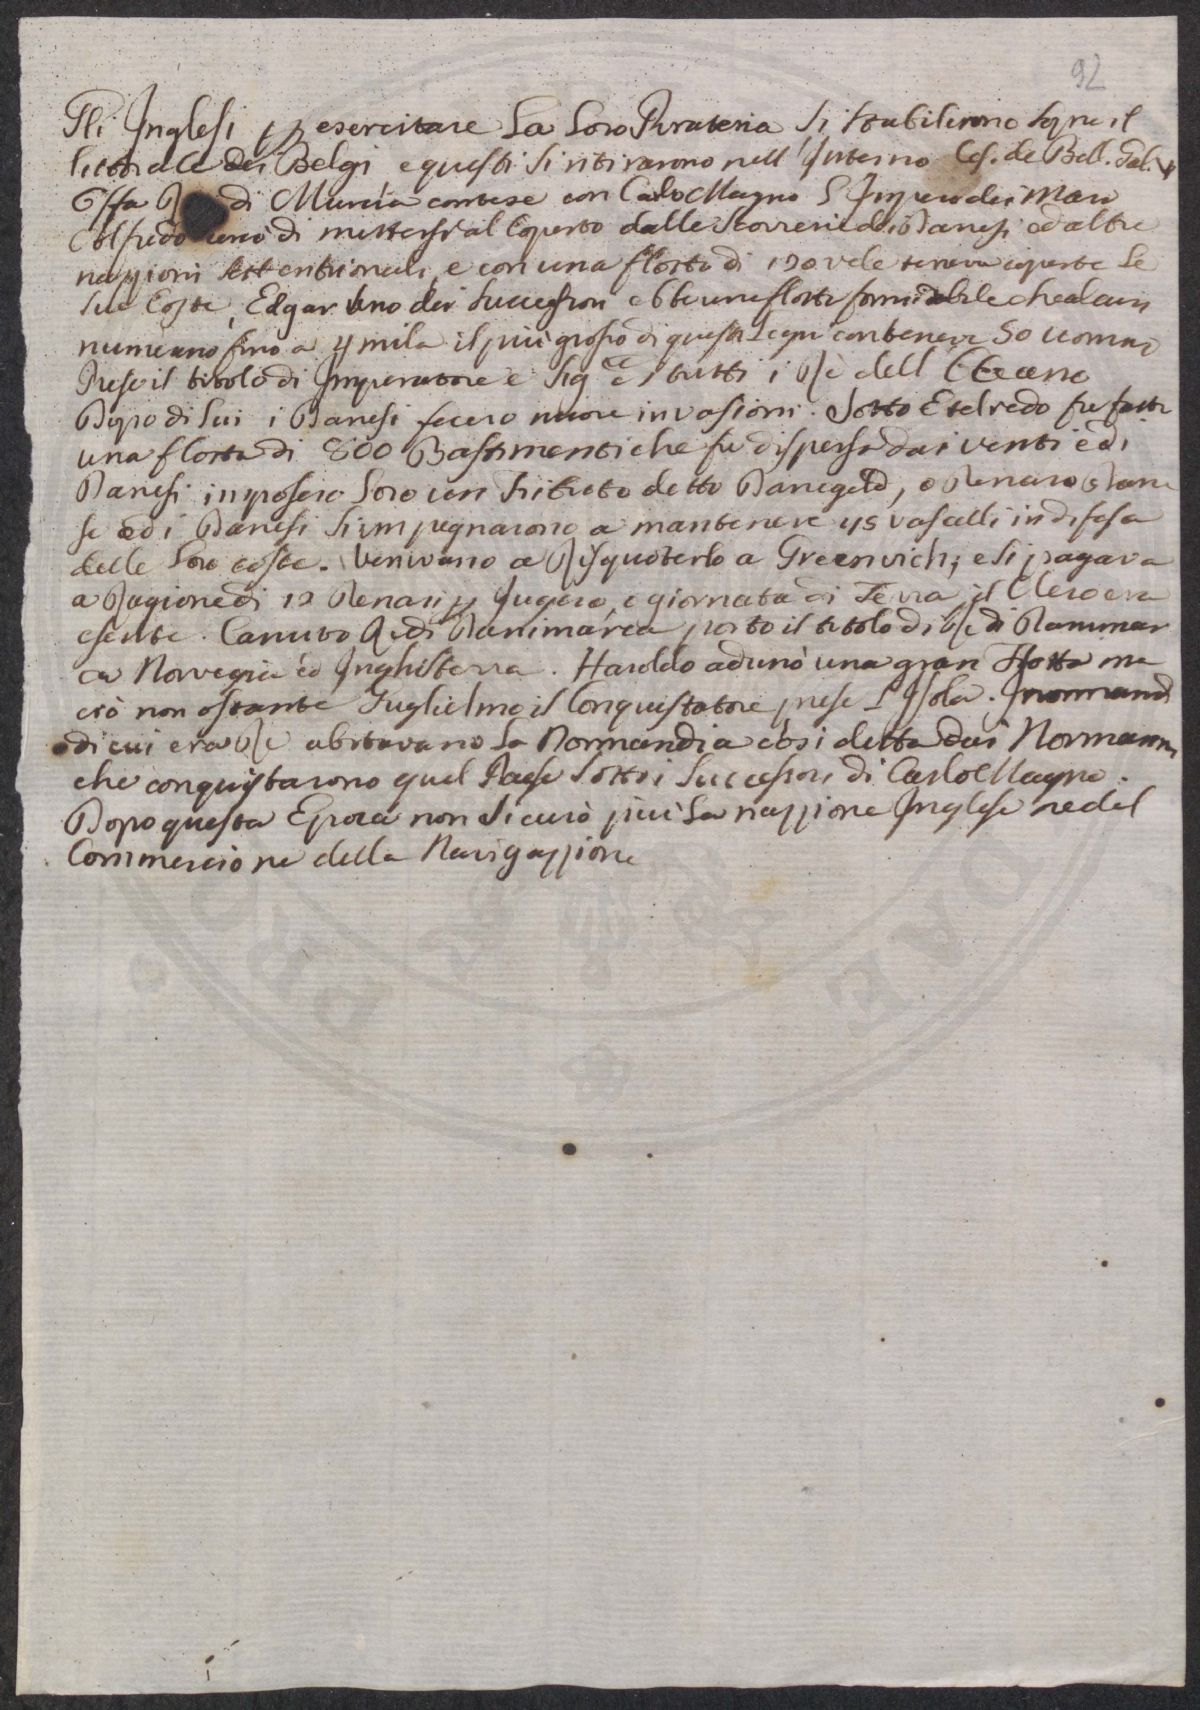 92
Gli Inglesi p esercitare La Loro Pirateria si stabilirono sopra il
littorale dei Belgi e questi si ritirarono nell'Interno Ces. de Bell. Gal. V
Offa di Murcia contese con Carlo Magno L'Impero dei Mari
Alfredo di mettersi al Coperto dalle Scorrerie dei Danesi ed altre
nazzioni settentrionali, e con una flotta di 120 vele teneva coperte Le
sue Coste, Edgar uno dei successori ebbe una flotta formidabile che alcuni
numerano fino a 4 mila il più grosso di questi Legni conteneva 50 uomini
Prese il titolo di Imperatore e Sig.re di tutti i Rè dell'Occeano
Dopo di Lui i Danesi fecero nuove invasioni. Sotto Etelredo fu fatta
una flotta di 800 Bastimenti che fu dispersa dai venti ed i
Danesi imposero Loro un Tributo detto Danegeld, o Denaro Dane
se ed i Danesi s'impegnarono a mantenere 45 vascelli in difesa
delle Loro coste. Venivano a Risquoterlo a Greenvich; e si pagava
a Ragione di 12 Denari p Jugero, o giornata di Terra il Clero era
esente. Canuto Re di Danimarca portò il titolo di Rè di Danimar
ca Norvegia ed Inghilterra. Haroldo adunò una gran Flotta ma
ciò non ostante Guglielmo il Conquistatore prese L'Isola. I normandi
di cui era Rè abitavano La Normandia così detta dai Normanni
che conquistarono quel Paese Sotto i Successori di Carlo Magno.
Dopo questa Epoca non si curò più La nazzione Inglese ne del
Commercio ne della Navigazzione